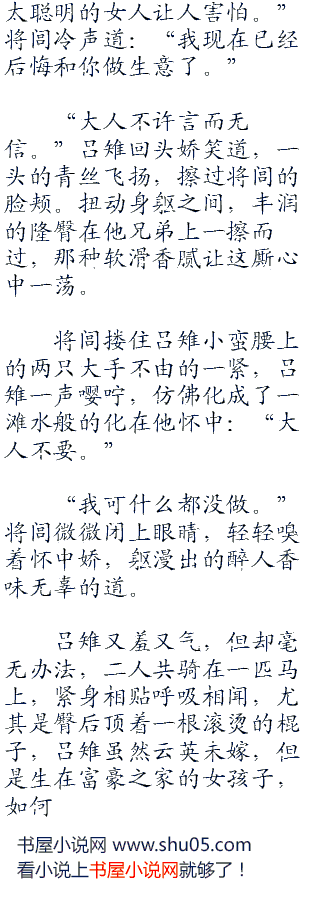 太聪明的女人让人害怕。”
将闾冷声道：“我现在已经
后悔和你做生意了。”
“大人不许言而无
信。”吕雉回头娇笑道，一
头的青丝飞扬，擦过将闾的
脸颊。扭动身躯之间，丰润
的隆臀在他兄弟上一擦而
过，那种软滑香腻让这厮心
中一荡。
将闾搂住吕雉小蛮腰上
的两只大手不由的一紧，吕
雉一声嘤咛，仿佛化成了一
滩水般的化在他怀中：“大
人不要。”
“我可什么都没做。”
将闾微微闭上眼睛，轻轻嗅
着怀中娇，躯漫出的醉人香
味无辜的道。
吕雉又羞又气，但却毫
无办法，二人共骑在一匹马
上，紧身相贴呼吸相闻，尤
其是臀后顶着一根滚烫的棍
子，吕雉虽然云英未嫁，但
是生在富豪之家的女孩子，
如何
书屋小说网 www.shu05.com
看小说上书屋小说网就够了！